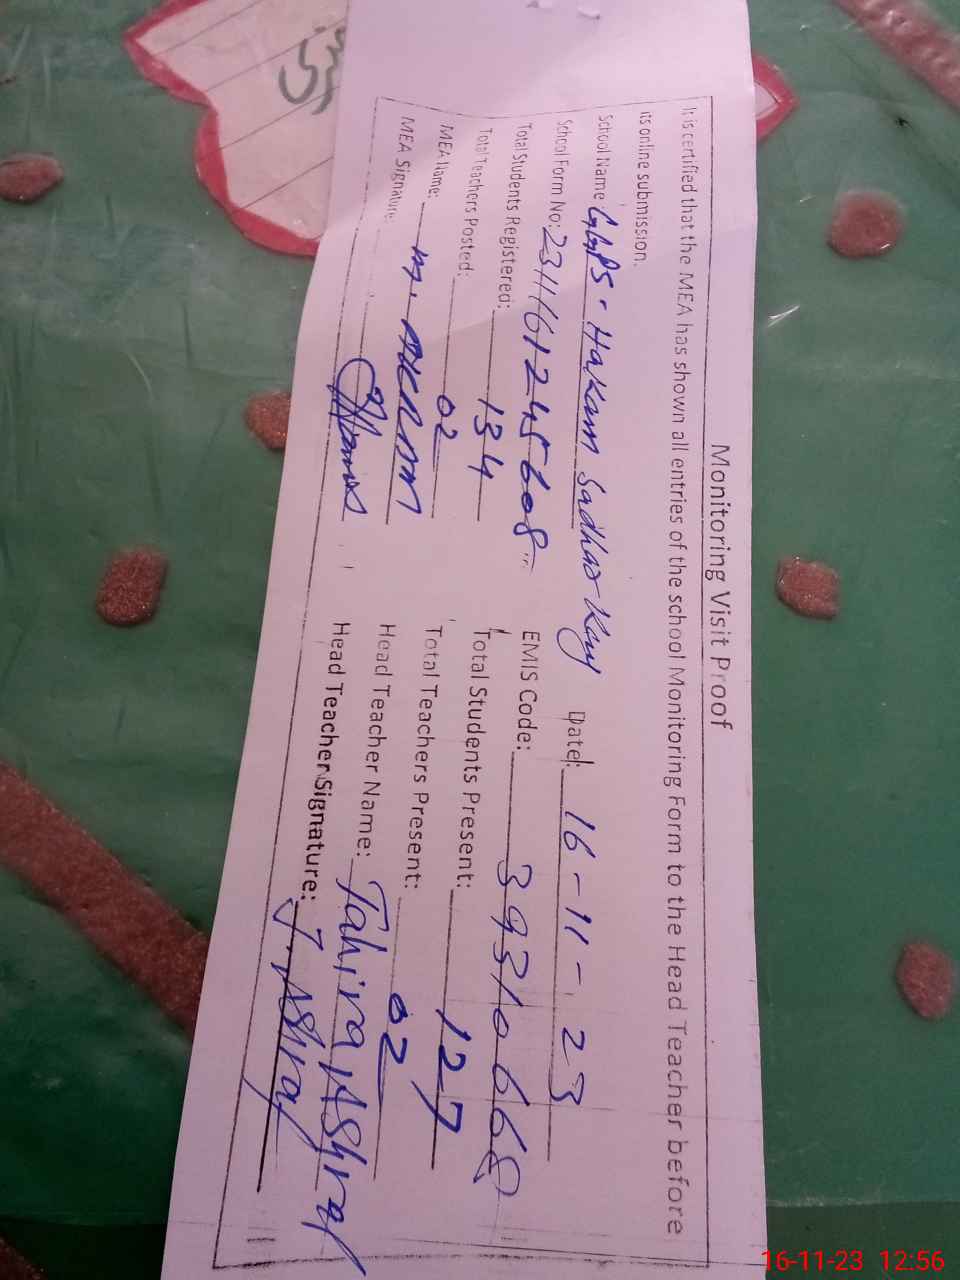 Monitoring Visit Proof
It is certified that the MEA has shown all entries of the school Monitoring Form to the Head Teacher before
its online submission.
School Name GGPS. Hakam Sadhar Kay Date: 16-11-23
School Form No: 231161245608 EMIS Code: 39310668
Total Students Registered: 134 Total Students Present: 127
Total Teachers Posted: 02 Total Teachers Present: 02
MEA Name: M. Akram Head Teacher Name: Tahira Ashraf
MEA Signature: Head Teacher Signature: T. Ashraf
16-11-23 12:56